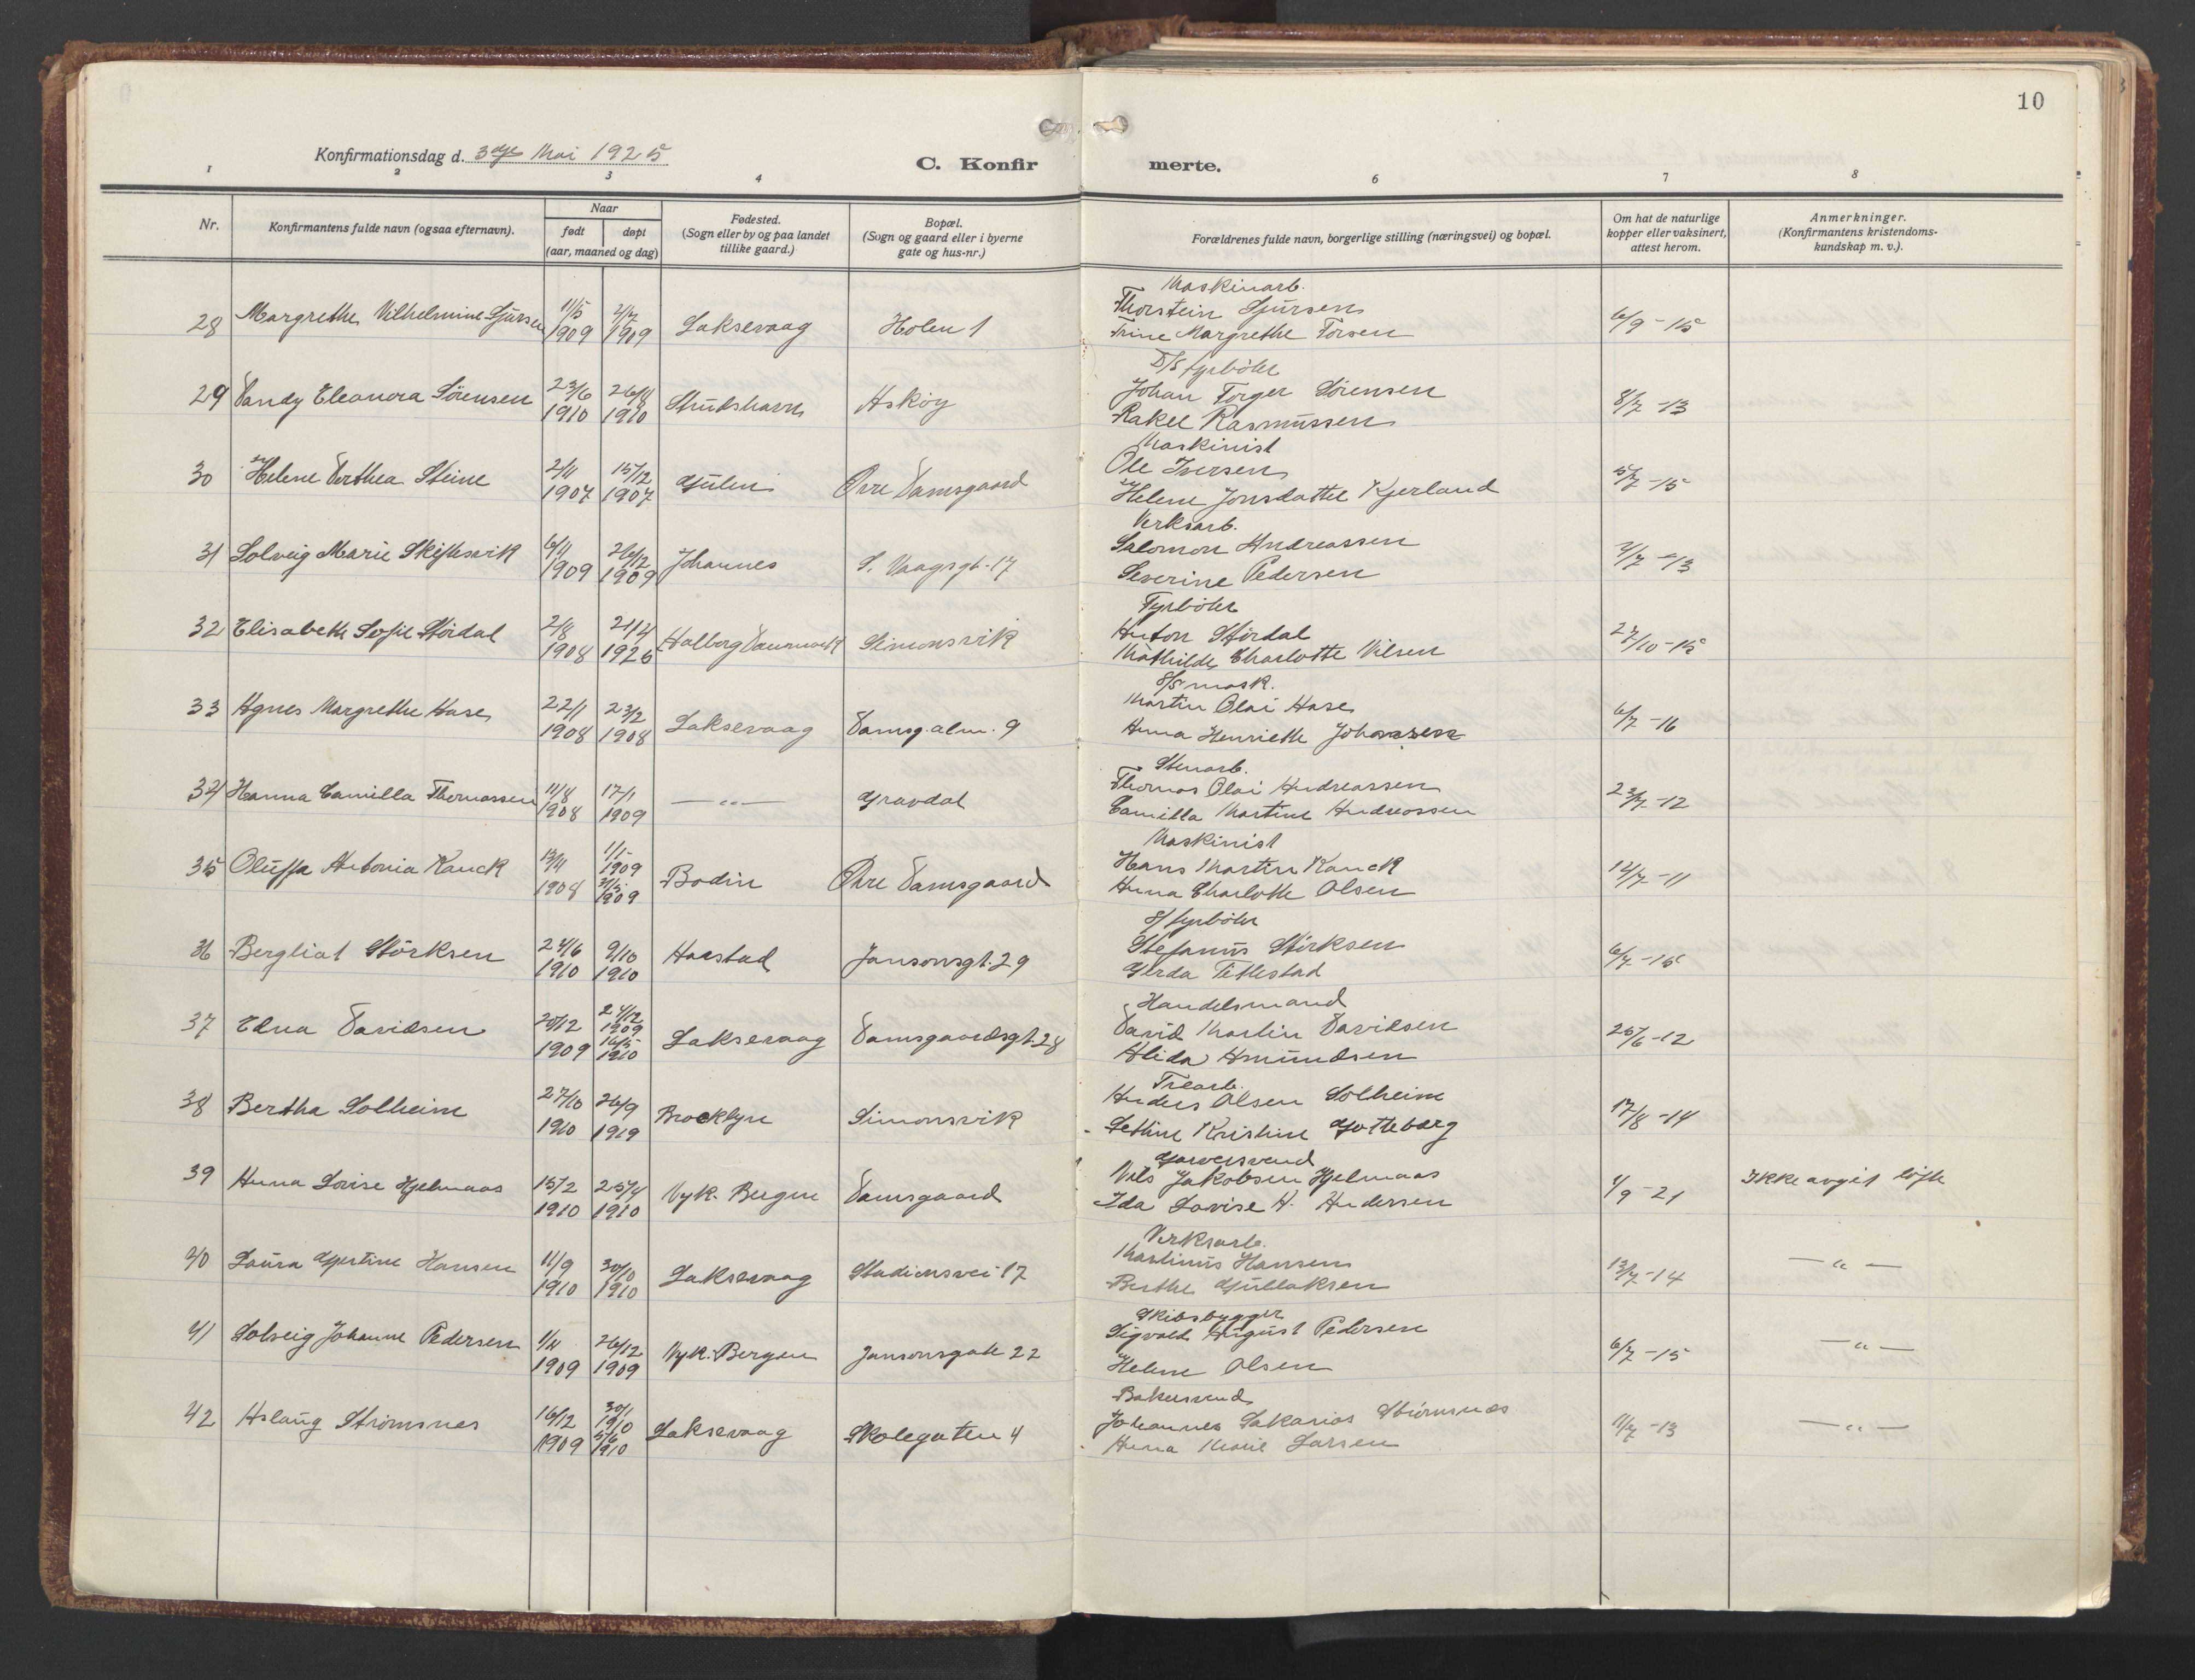 10
Konfirmationsdag d. 3dje Mai 1925
C. Konfirmerte.
1 2 3 4 6 7 8
Nr.
Konfirmantens fulde navn (ogsaa efternavn).
Naar
født døpt
(aar, maaned og dag)
Fødested.
(Sogn eller by og paa landet
tillike gaard.)
Bopæl.
(Sogn og gaard eller i byerne
gate og hus-nr.)
Forældrenes fulde navn, borgerlige stilling (næringsvei) og bopæl.
Om hat de naturlige
kopper eller vaksinert,
attest herom.
Anmerkninger.
(Konfirmantens kristendoms-
kundskap m. v.).
Maskinarb.
28 Margrethe Vilhelmine Sjursen 11/5 1909 1909 Laksevaag Holen 1 Thorstein Sjursen 6/9 - 15
Trine Margrethe Torsen
D/S fyrbøter
29 Dandy Eleonora Sørensen 23/6 1910 26/8 1910 Strudshavn Askøy Johan Torger Sørensen 8/7 - 13
Rakel Rasmussen
Maskinist
30 Helene Dorthea Steine 2/11 1907 15/12 1907 Gulen Øvre Damsgaard Ole Iversen 5/7 - 15
Helene Jonsdatter Kjerland
Verksarb.
31 Solveig Marie Skiftesvik 6/11 1909 26/12 1909 Johannes S. Vaagsgt. 17 Salomon Andreassen 2/7 - 13
Severine Pedersen
Fyrbøter
32 Elisabeth Sofie Størdal 2/8 1908 21/4 1926 Aalborg Danmark Simonsvik Anton Størdal 27/10 - 15
Mathilde Charlotte Nilsen
S/S mask.
33 Agnes Margrethe Hase 22/1 1908 23/2 1908 Laksevaag Damsg.alm. 9 Martin Olai Hase 6/7 - 16
Anna Henriette Johannsen
Stenarb.
34 Hanna Camilla Thomassen 11/8 1908 17/1 1909 — " — Gravdal Thomas Olai Andreassen 23/7 - 12
Camilla Martine Andreassen
Maskinist
35 Oluffa Antonia Kanck 13/11 1908 1/1 1909 31/5 1909 Bodin Øvre Damsgaard Hans Martin Kanck 12/7 - 11
Anna Charlotte Olsen
S/ fyrbøter
36 Bergliot Størksen 24/6 1910 9/10 1910 Harstad Jansonsgt. 29 Stefanus Størksen 6/7 - 15
Gerda Titlestad
Handelsmand
37 Edna Davidsen 20/12 1909 24/12 1909 16/5 1910 Laksevaag Damsgaardsgt. 28 David Martin Davidsen 25/6 - 12
Alida Amundsen
Trearb.
38 Bertha Solheim 27/10 1910 26/9 1919 Brooklyn Simonsvik Anders Olsen Solheim 17/8 - 14
Sethine Kristine Gotteberg
Garversvend
39 Anna Lovise Hjelmaas 15/2 1910 25/4 1910 Nyk. Bergen Damsgaard Nils Jakobsen Hjelmaas 1/9 - 21 Ikke avgit løfte
Ida Lovise H. Andersen
Verksarb.
40 Laura Gjertine Hansen 11/9 1910 30/10 1910 Laksevaag Stadionsvei 17 Martinus Hansen 13/7 - 14 — " —
Berthe Gullaksen
Skibsbygger
41 Solveig Johanne Pedersen 1/11 1909 26/12 1909 Nyk. Bergen Jansonsgate 22 Sigvald August Pedersen 6/7 - 15 — " —
Helene Olsen
Bakersvend
42 Aslaug Strømsnes 16/12 1909 30/1 1910 5/6 1910 Laksevaag Skolegaten 4 Johannes Sakarias Strømsnes 11/7 - 13 — " —
Anna Marie Larsen